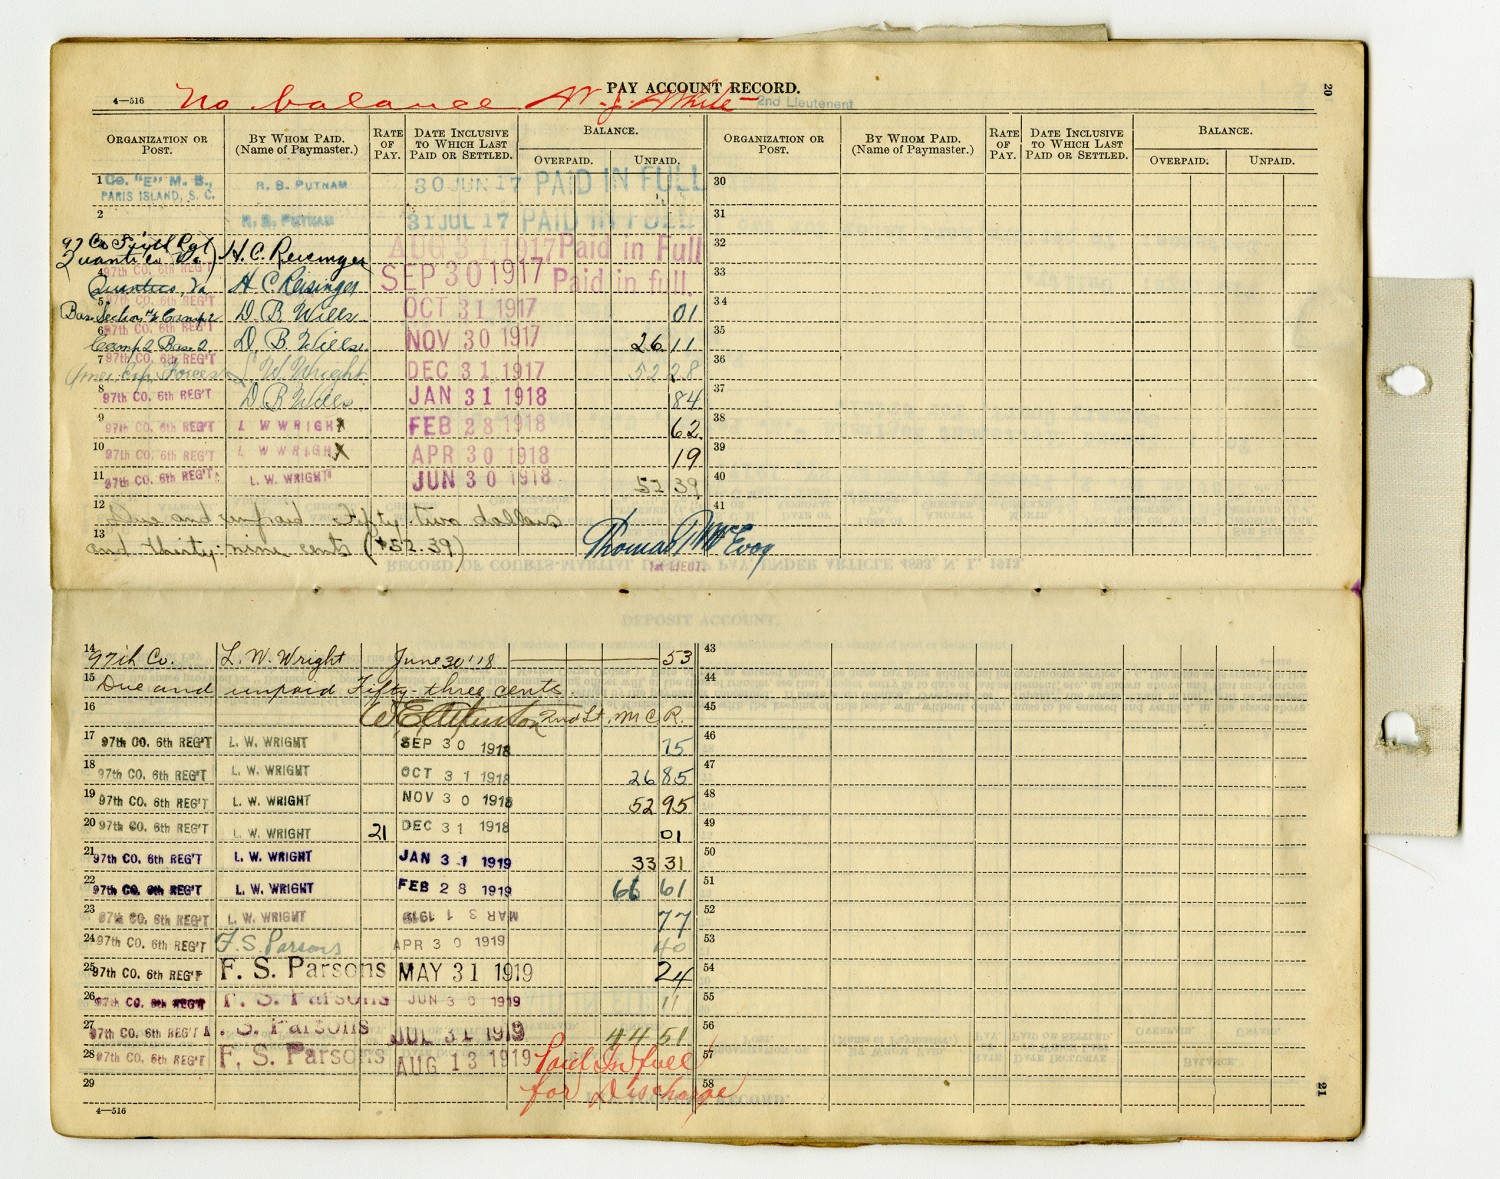 PAY ACCOUNT RECORD. 20
4—516 No balance W. J. White 2nd Lieutenent
ORGANIZATION OR POST. BY WHOM PAID. (Name of Paymaster.) RATE OF PAY. DATE INCLUSIVE TO WHICH LAST PAID OR SETTLED. BALANCE. OVERPAID. UNPAID. ORGANIZATION OR POST. BY WHOM PAID. (Name of Paymaster.) RATE OF PAY. DATE INCLUSIVE TO WHICH LAST PAID OR SETTLED. BALANCE. OVERPAID. UNPAID.
1 Co. "E" M. B., PARIS ISLAND, S. C. R. B. PUTNAM 30 JUN 17 PAID IN FULL 30
2 R. B. PUTNAM 31 JUL 17 PAID IN FULL 31
97 Co Sixth Rgt Quantico Va. H. C. Reisinger AUG 31 1917 Paid in Full 32
4 97th CO. 6th REG'T Quantico, Va H C Reisinger SEP 30 1917 Paid in full. 33
5 97th CO. 6th REG'T Base Section #2 Camp 2 D. B. Wills OCT 31 1917 01 34
6 97th CO. 6th REG'T Camp 2 Base 2 D. B. Wills NOV 30 1917 26 11 35
7 97th CO. 6th REG'T Amer. Exp. Forces L W. Wright DEC 31 1917 52 28 36
8 97th CO. 6th REG'T D B Wills JAN 31 1918 84 37
9 97th CO. 6th REG'T L W WRIGHT FEB 28 1918 62 38
10 97th CO. 6th REG'T L W WRIGHT APR 30 1918 19 39
11 97th CO. 6th REG'T L. W. WRIGHT JUN 30 1918 52 39 40
12 Due and unpaid Fifty-two dollars 41
13 and thirty-nine cents ($52.39) Thomas T. McEvoy
1st LIEUT.
14 97th Co. L. W. Wright June 30 '18 53 43
15 Due and unpaid Fifty-three cents. 44
16 2nd Lt. M C R. 45
17 97th CO. 6th REG'T L. W. WRIGHT SEP 30 1918 75 46
18 97th CO. 6th REG'T L. W. WRIGHT OCT 31 1918 26 85 47
19 97th CO. 6th REG'T L. W. WRIGHT NOV 30 1918 52 95 48
20 97th CO. 6th REG'T L. W. WRIGHT 21 DEC 31 1918 01 49
21 97th CO. 6th REG'T L. W. WRIGHT JAN 31 1919 33 31 50
22 97th CO. 6th REG'T L. W. WRIGHT FEB 28 1919 66 61 51
23 97th CO. 6th REG'T L. W. WRIGHT MAR 31 1919 77 52
24 97th CO. 6th REG'T F. S. Parsons APR 30 1919 40 53
25 97th CO. 6th REG'T F. S. Parsons MAY 31 1919 24 54
26 97th CO. 6th REG'T F. S. Parsons JUN 30 1919 11 55
27 97th CO. 6th REG'T . S. Parsons JUL 31 1919 44 51 56
28 97th CO. 6th REG'T F. S. Parsons AUG 13 1919 Paid In full 57
29 for Discharge 58
4—516 21